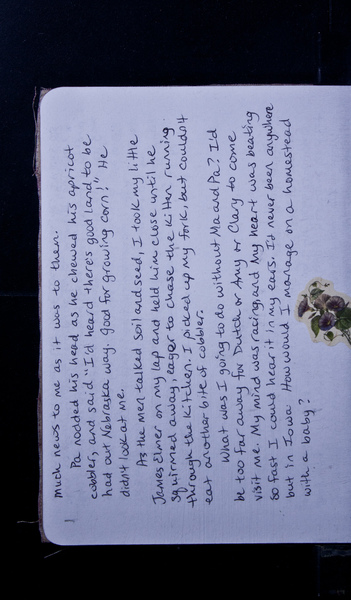 much news to me as it was to them.
Pa nodded his head as he chewed his apricot
cobbler, and said "I'd heard there's good land to be
had out Nebraska way. Good for growing corn!" He
didn't look at me.
As the men talked soil and seed, I took my little
James Elmer on my lap and held him close until he
squirmed away, eager to chase the kitten running
through the kitchen. I picked up my fork, but couldn't
eat another bite of cobbler.
What was I going to do without Ma and Pa? I'd
be too far away for Dutch or Amy or Clary to come
visit me. My mind was racing and my heart was beating
so fast I could hear it in my ears. I'd never been anywhere
but in Iowa. How would I manage on a homestead
with a baby?
1